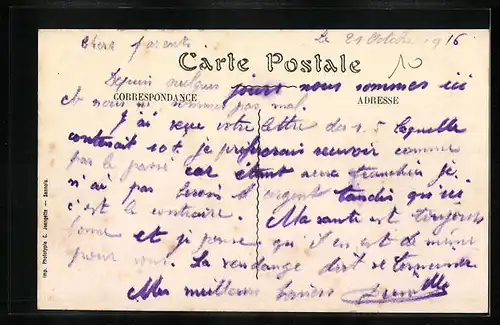 Le 21 Octobre 1916
Chers parents
Carte Postale
Depuis quelques jours nous sommes ici
CORRESPONDANCE
ADRESSE
et nous n'y sommes pas mal.
J'ai reçu votre lettre du 15 laquelle
contenait 10f. je préférerais recevoir comme
par le passé car étant aux tranchées je
n'ai pas besoin d'argent tandis qu'ici
c'est le contraire. Ma santé est toujours
bonne et je pense qu'il en est de même
pour vous. La vendange doit se terminer
Mes meilleurs baisers
Imp. Phototypie C. Jeangette — Sannois.
10